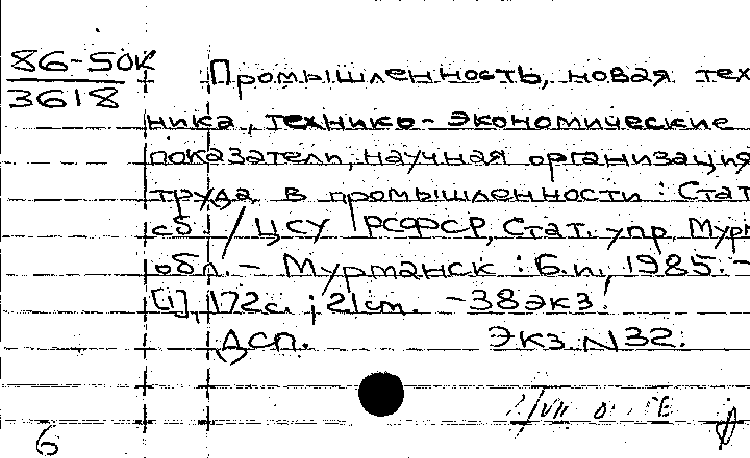 86-50К
3618
Промышленность, новая тех
ника, технико-экономические
показатели, научная организация
труда в промышленности : Стат
сб / ЦСУ РСФСР, Стат. упр. Мурм
обл. – Мурманск : Б.и., 1985. –
[1], 172с. ; 21см. – 38экз.
ДСП. Экз. N32.
6